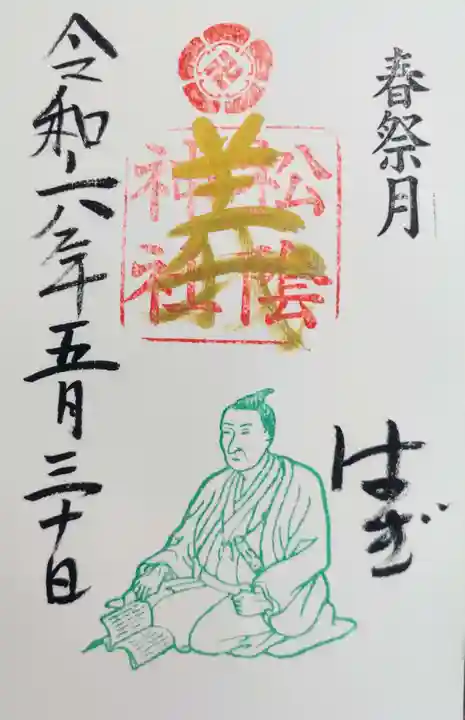 春祭月
はぎ
松陰
神社
義
令和六年五月三十日